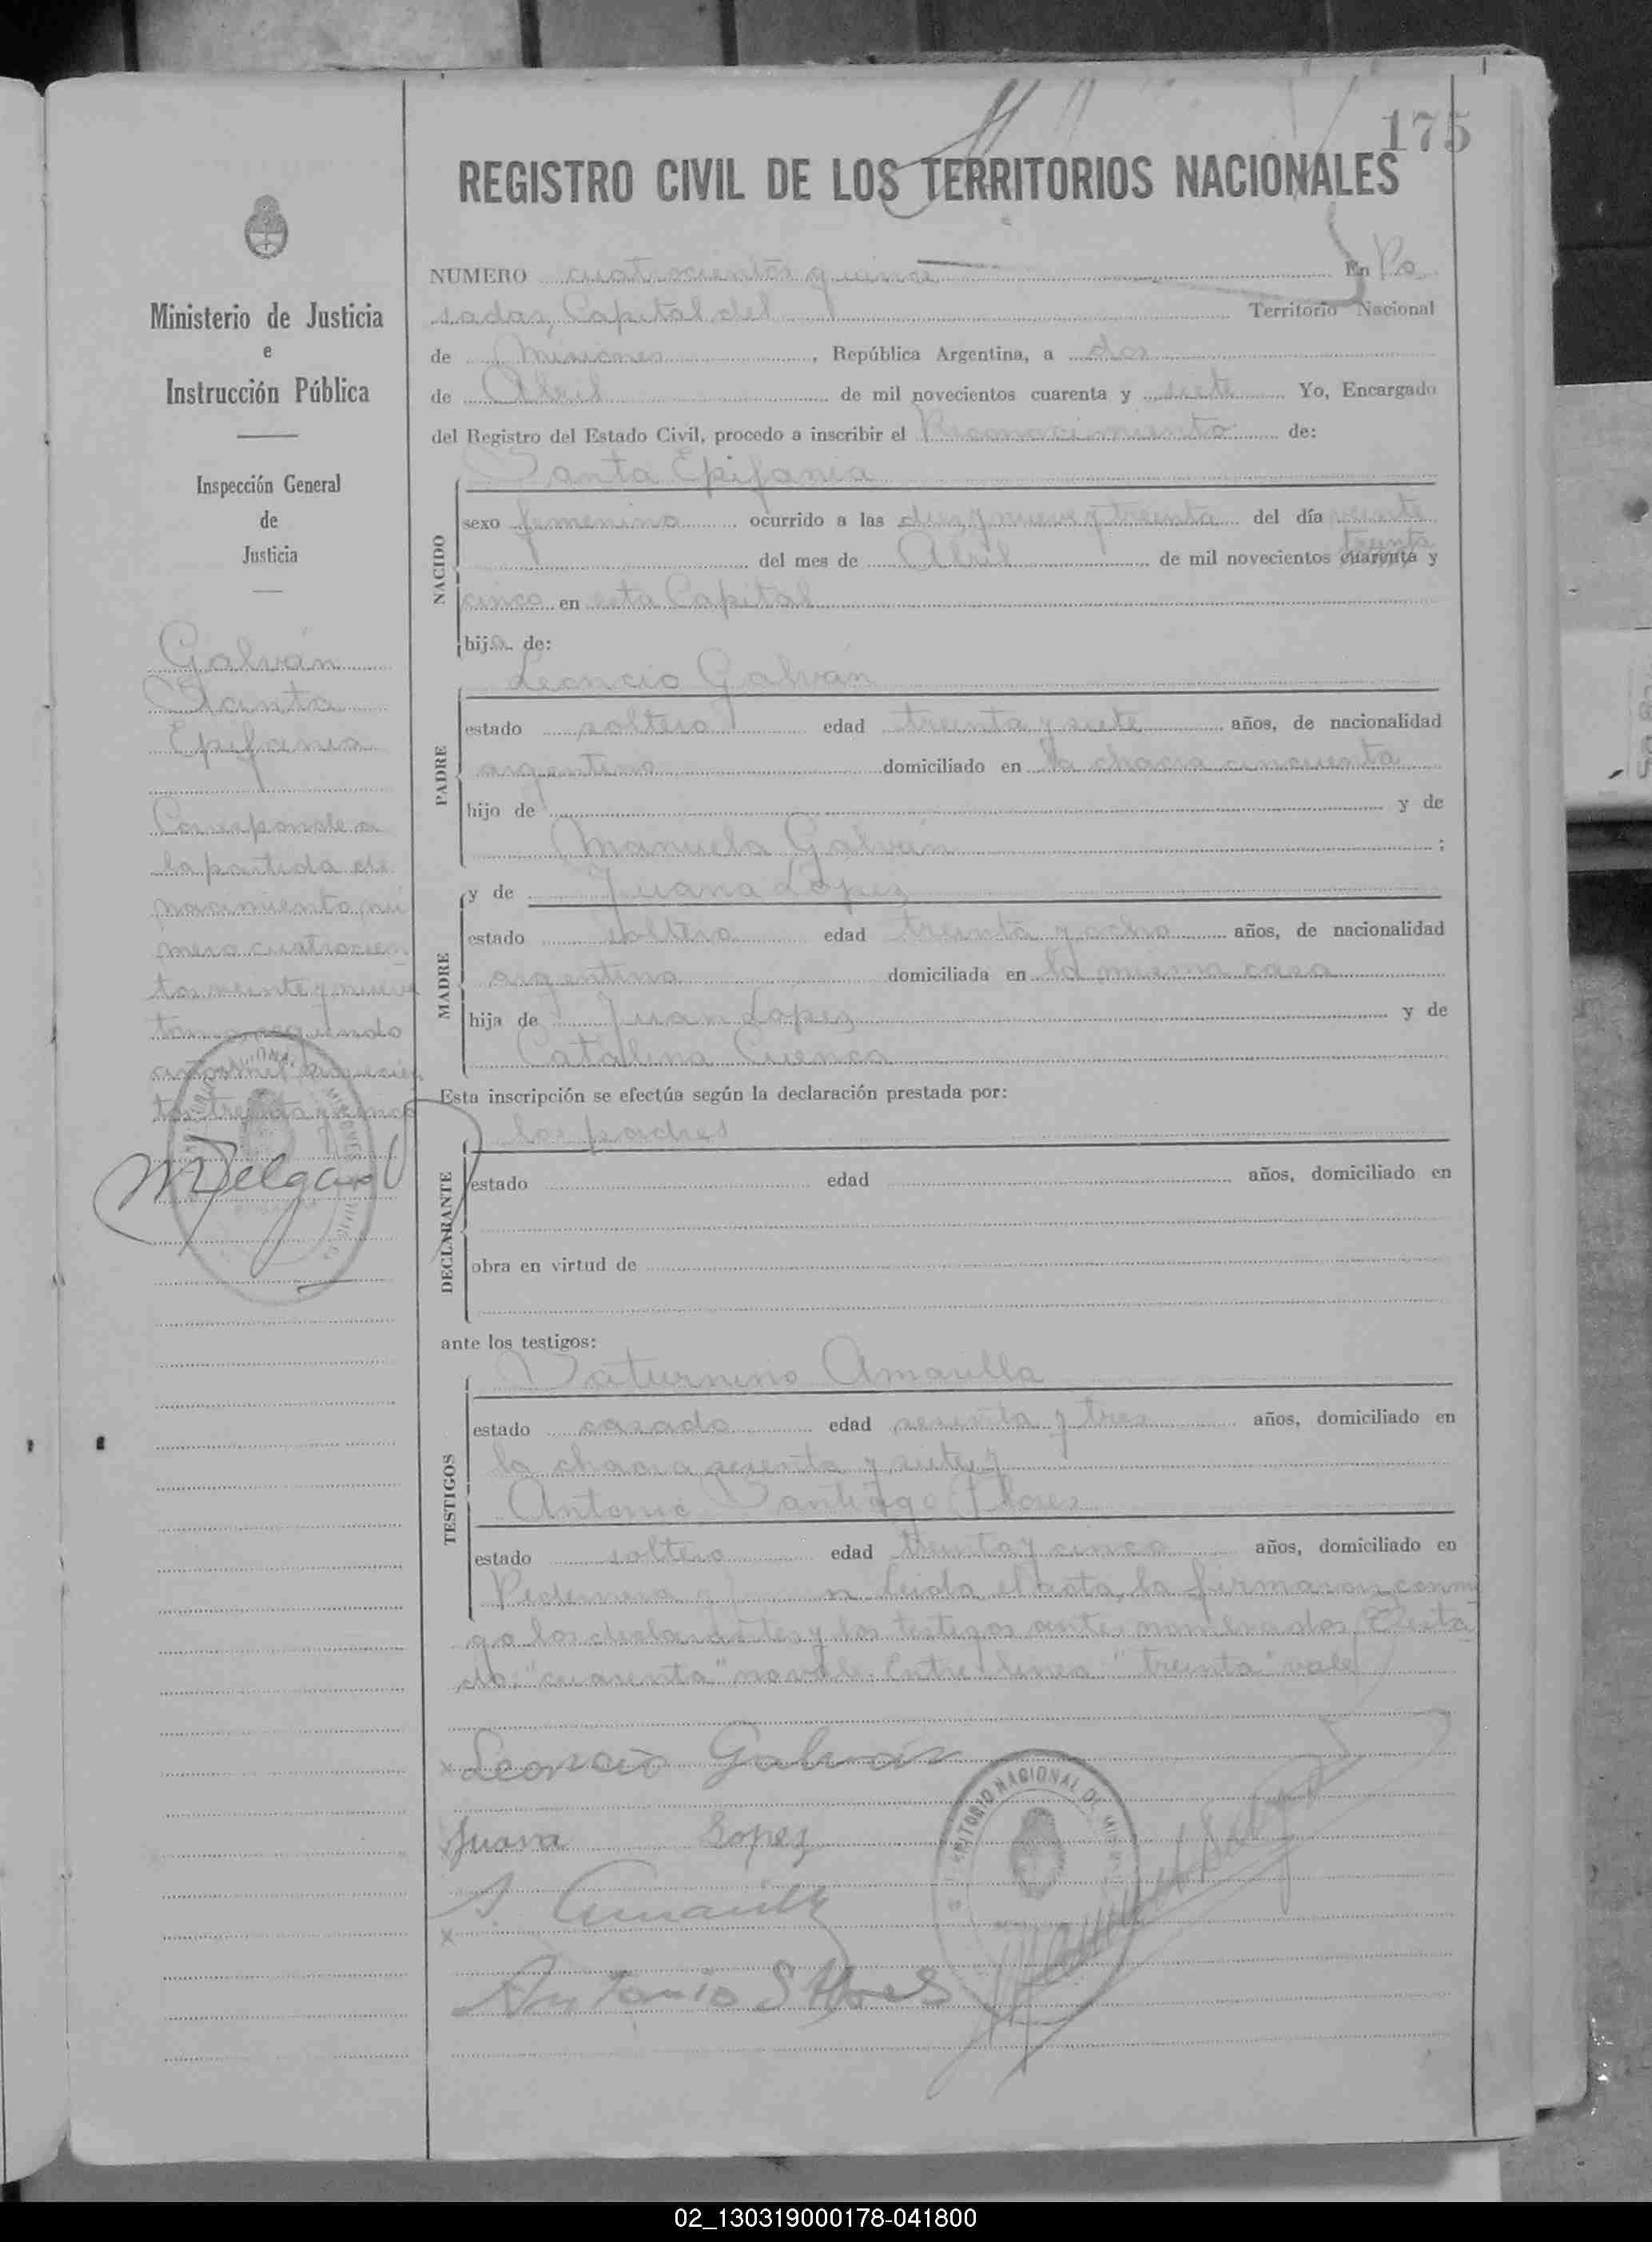 175
REGISTRO CIVIL DE LOS TERRITORIOS NACIONALES
Ministerio de Justicia
e
Instrucción Pública
Inspección General
de
Justicia
Galván
Santa
Epifania
Corresponde a
la partida de
nacimiento nú
mero cuatrocien
tos veinte y nueve
tomo segundo
año mil novecien
tos treinta y cinco
MDelgado
NUMERO cuatrocientos quince En Po
sadas, Capital del Territorio Nacional
de Misiones, República Argentina, a dos
de Abril de mil novecientos cuarenta y siete Yo, Encargado
del Registro del Estado Civil, procedo a inscribir el Reconocimiento de:
NACIDO
Santa Epifania
sexo femenino ocurrido a las diez y nueve y treinta del día veinte
treinta
del mes de Abril de mil novecientos cuarenta y
cinco en esta Capital
hija de:
PADRE
Leoncio Galván
estado soltero edad treinta y siete años, de nacionalidad
argentino domiciliado en la chacra cincuenta
hijo de y de
Manuela Galván ;
MADRE
y de Juana López
estado soltera edad treinta y ocho años, de nacionalidad
argentina domiciliada en la misma casa
hija de Juan López y de
Catalina Cuenca
Esta inscripción se efectúa según la declaración prestada por:
DECLARANTE
los padres
estado edad años, domiciliado en
obra en virtud de
ante los testigos:
TESTIGOS
Saturnino Amarilla
estado casado edad sesenta y tres años, domiciliado en
la chacra sesenta y siete y
Antonio Santiago Flores
estado soltero edad treinta y cinco años, domiciliado en
Pedernera Leida el acta, la firmaron conmi
go los declarantes y los testigos ante nombrados Testa
do: "cuarenta" no vale. Entre linea "treinta" vale
x Leoncio Galván
x Juana Lopez
S. Amarilla
x
Antonio S Flores
TERRITORIO NACIONAL DE MISIONES
02_130319000178-041800